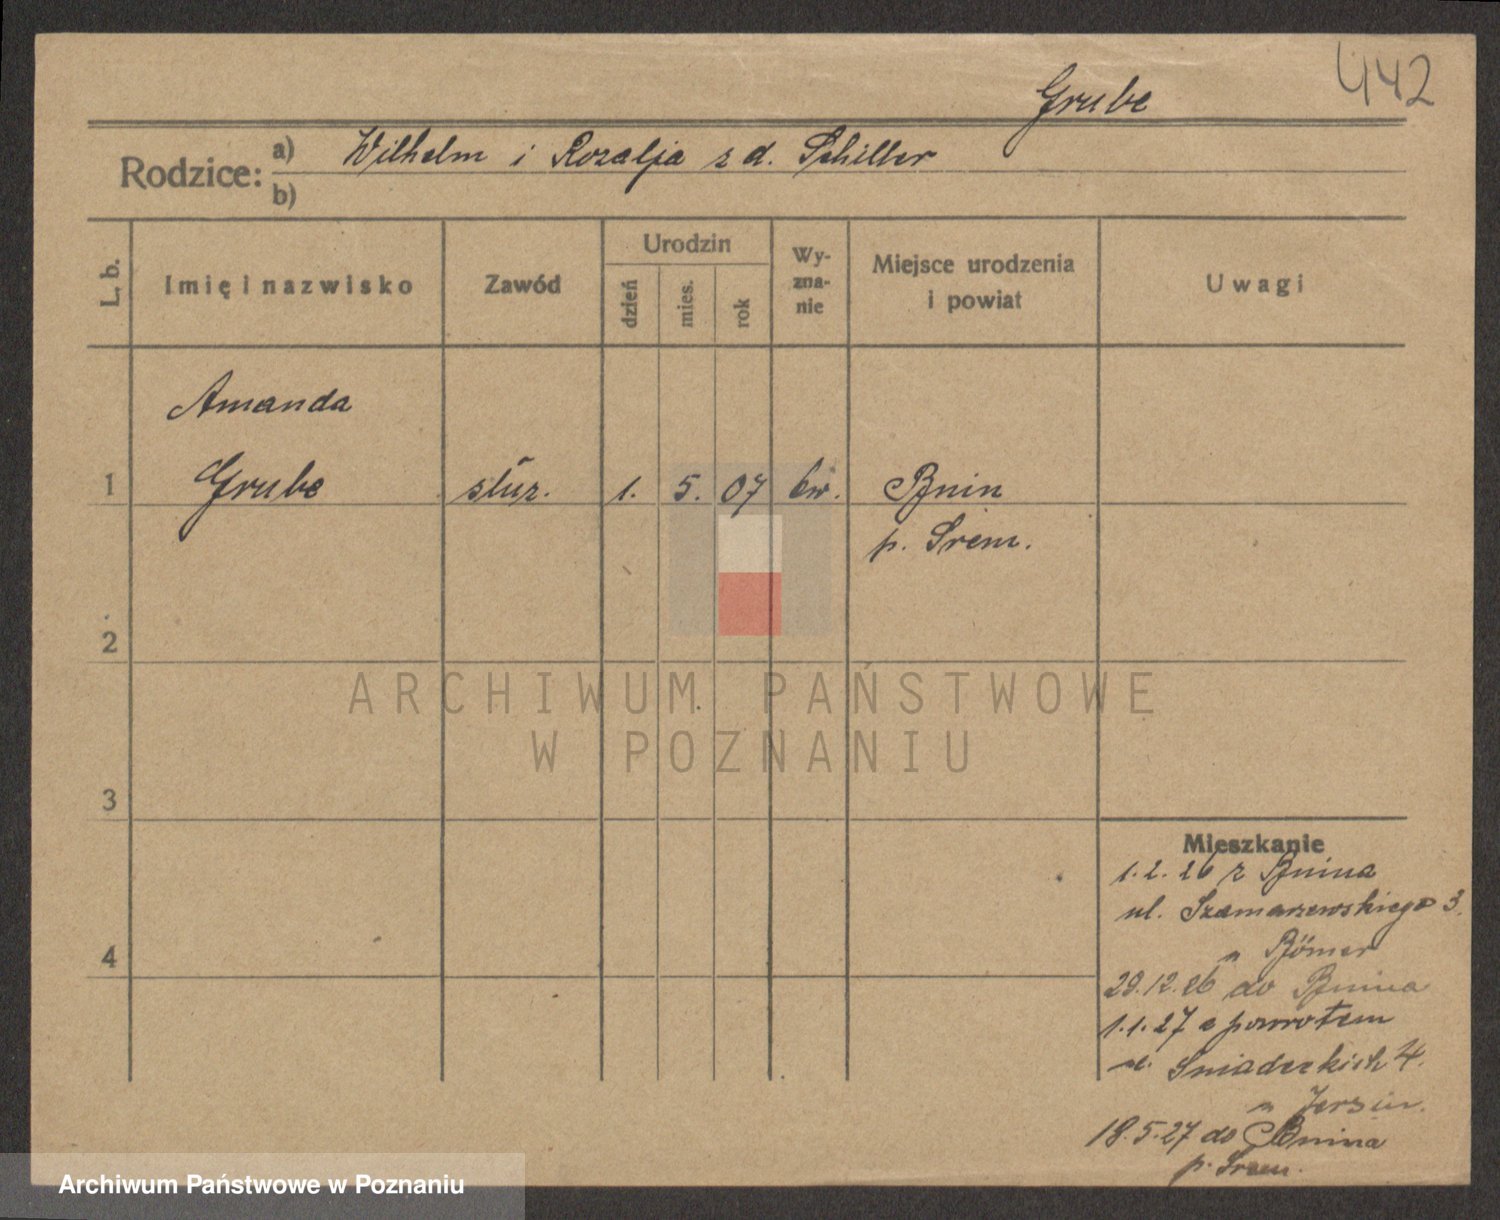 442
Grube
Rodzice: a) Wilhelm i Rozalja z d. Schiller
b)
L. b. Imię i nazwisko Zawód Urodzin dzień mies. rok Wy-zna-nie Miejsce urodzenia i powiat Uwagi
Amanda
1 Grube służ. 1. 5. 07 ew. Bnin
p. Srem.
2
ARCHIWUM PAŃSTWOWE
W POZNANIU
3
Mieszkanie
1.2.26 z Bnina
ul. Szamarzewskiego 3.
" Römer
4
29.12.26 do Bnina
1.1.27 z powrotem
ul. Sniadeckich 4.
" 
18.5.27 do Bnina
p. Srem.
Archiwum Państwowe w Poznaniu